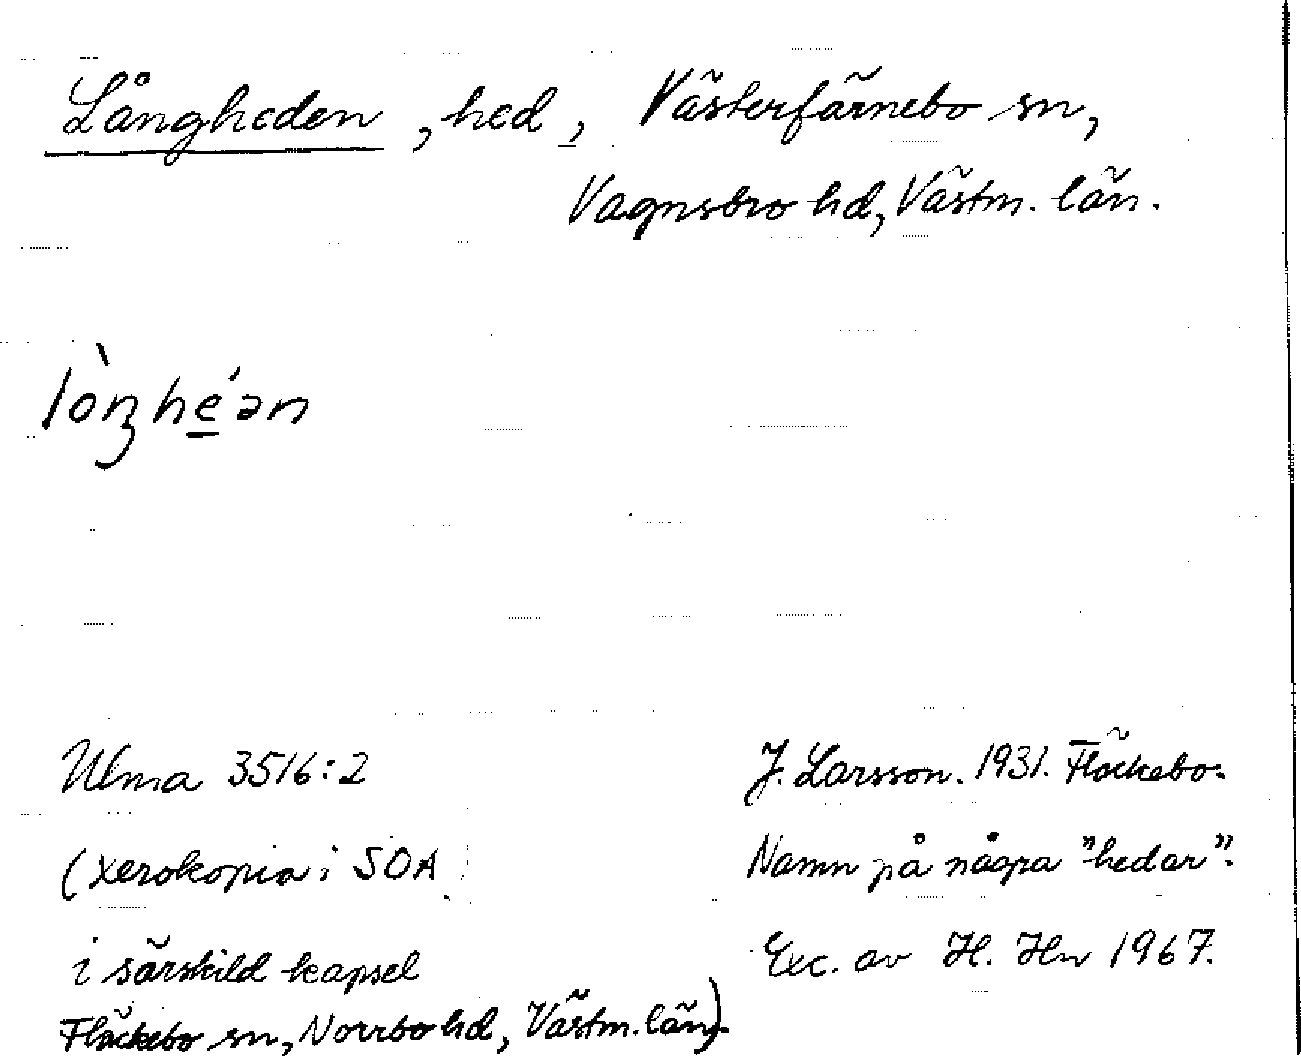 Långheden, hed, Västerfärnebo sn,
Vagnsbro hd, Västm. län.
lòŋhé̲ən
Ulma 3516:2
(xerokopia i SOA
i särskild kapsel
Fläckebo sn, Norrbo hd, Västm. län).
J. Larsson. 1931. Fläckebo.
Namn på några "hedar".
Exc. av H. Hn 1967.